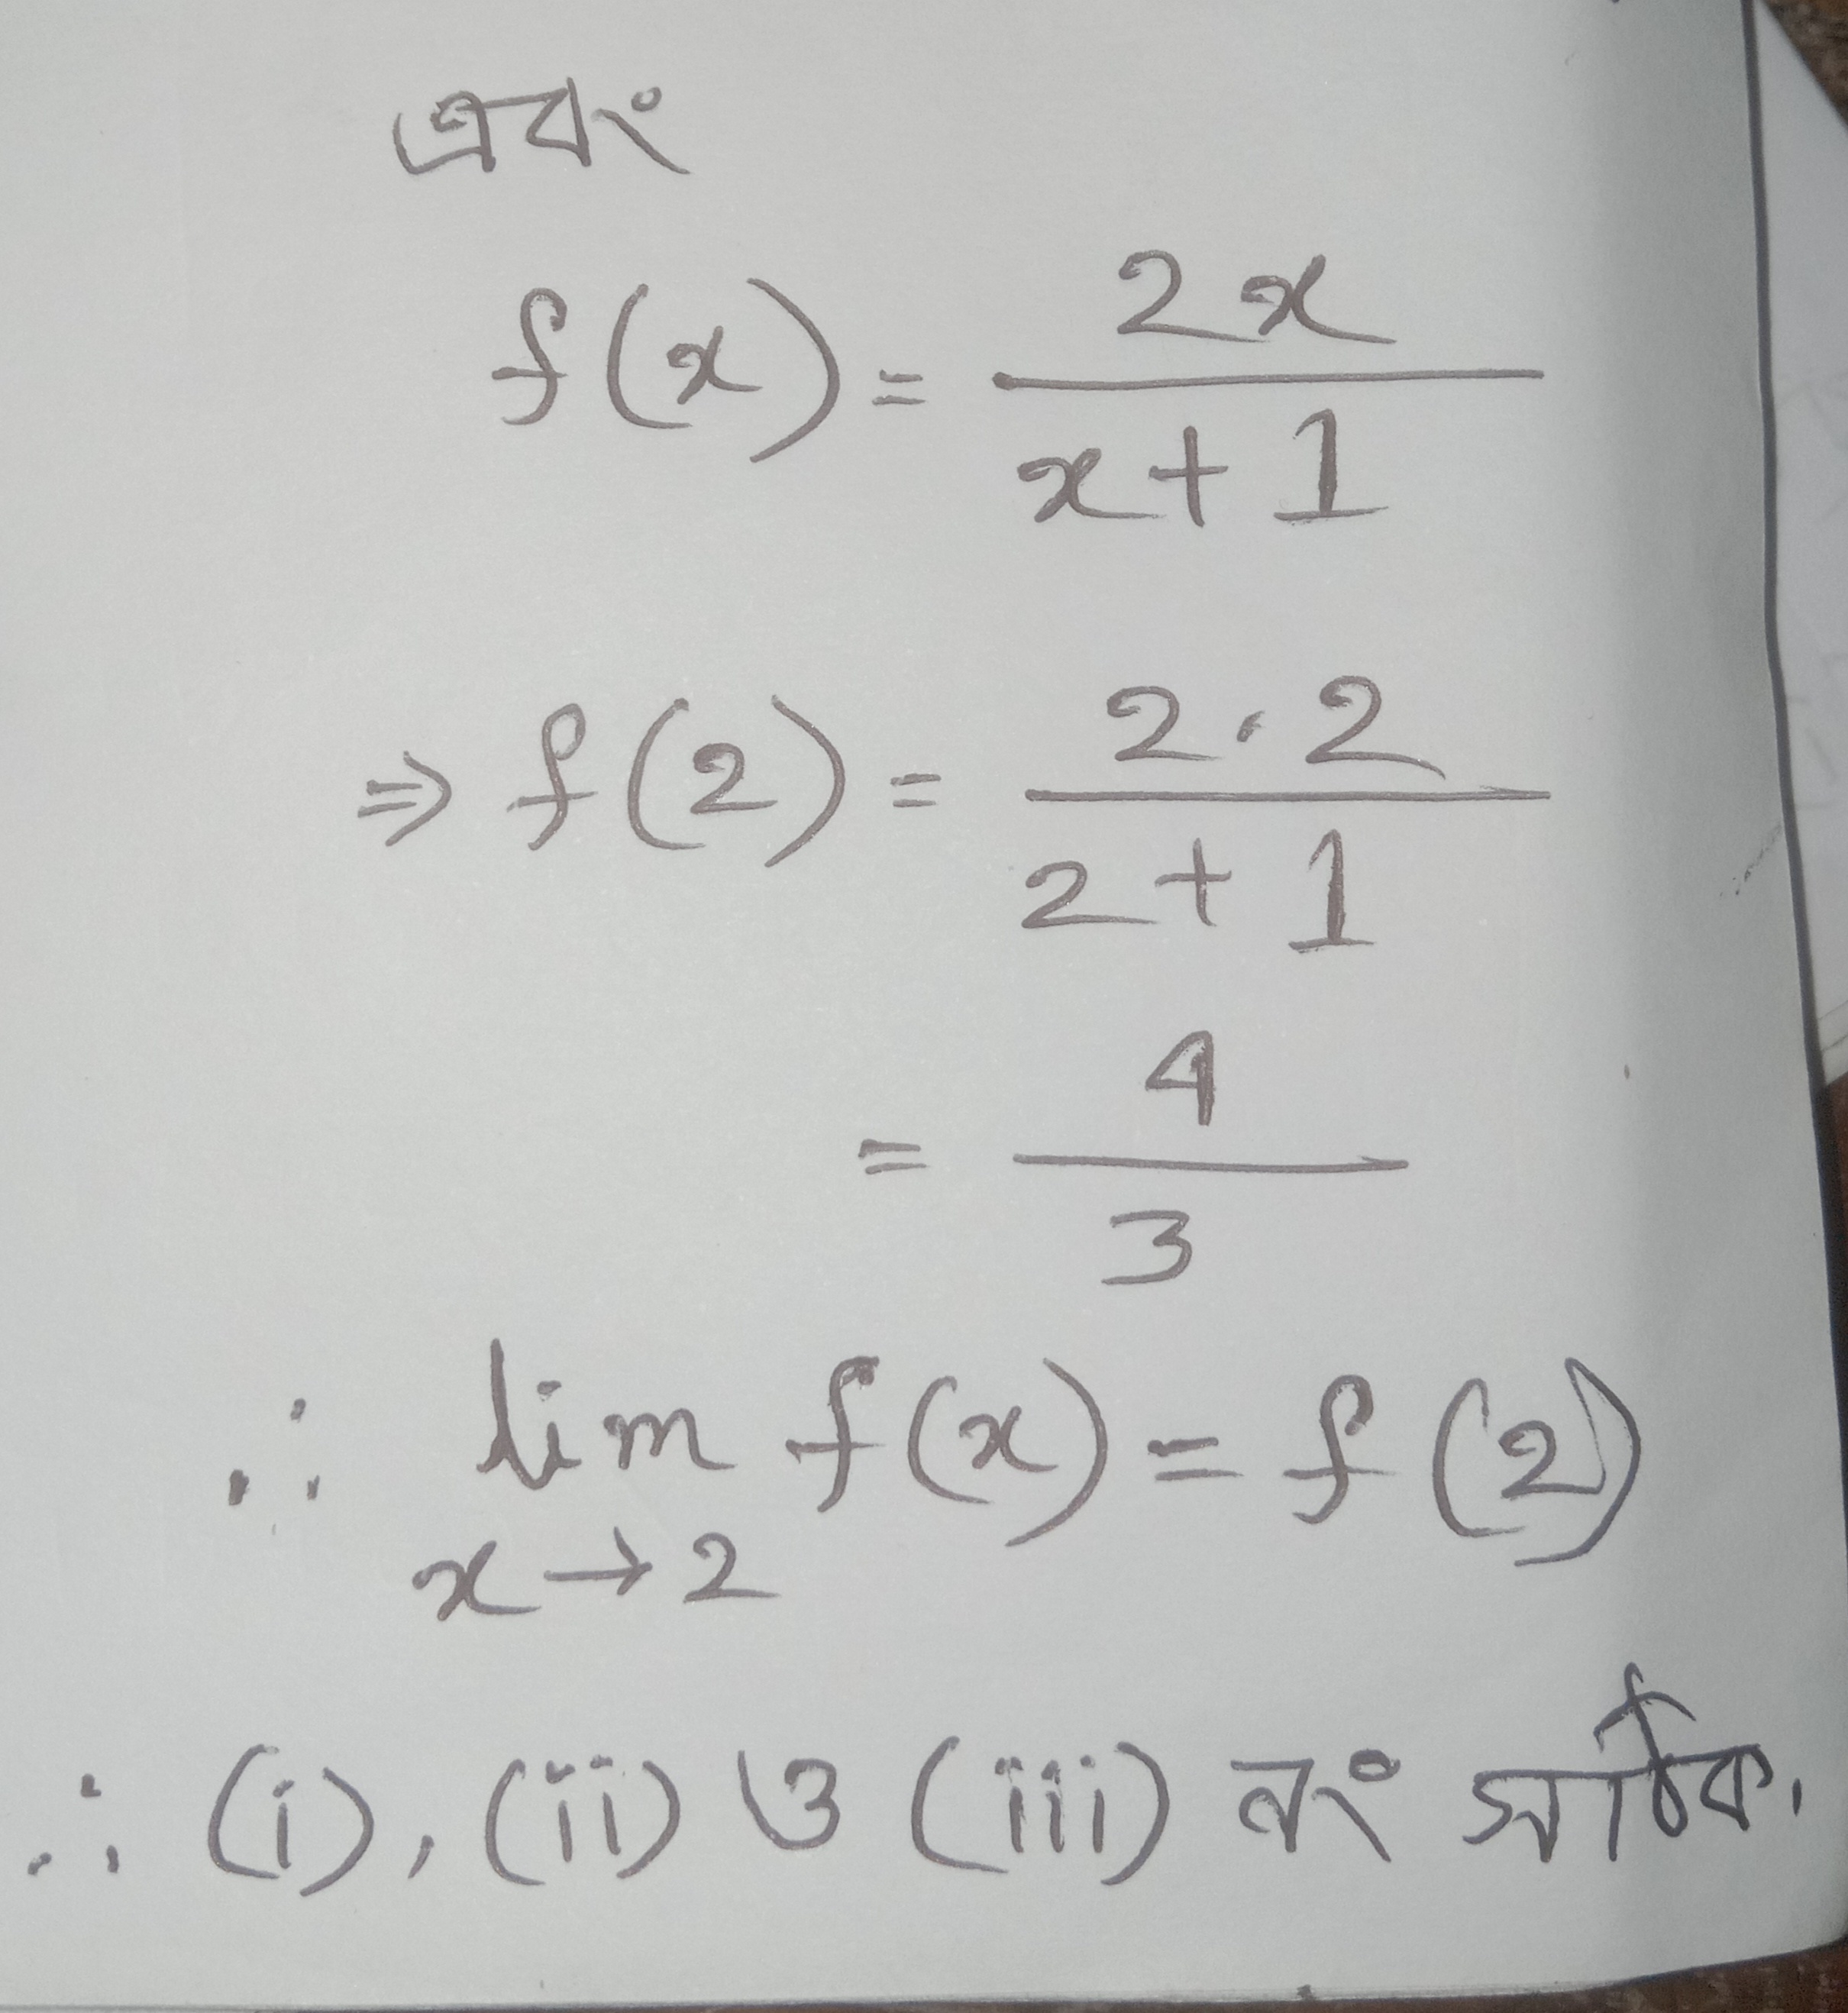 এবং
f(x) = 2x / x+1
⇒ f(2) = 2·2 / 2+1
= 4 / 3
∴ lim x→2 f(x) = f(2)
∴ (i), (ii) ও (iii) নং সঠিক.